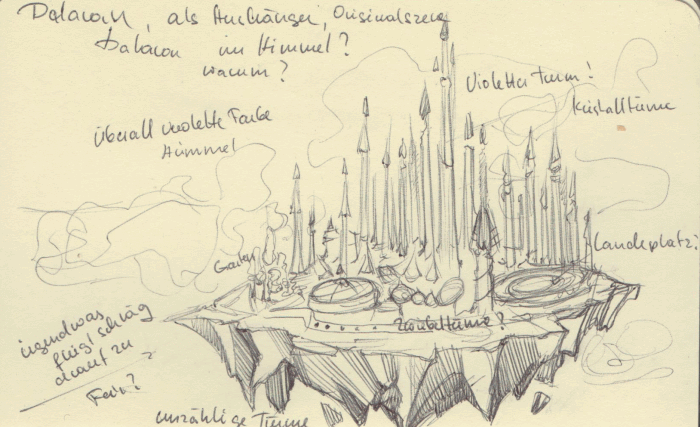 Dalaran, als Anhänger, Originalszene
Dalaran im Himmel?
warum?
Violetter Turm!
Kristalltürme
Überall violette Farbe
Himmel
Landeplatz?
Garten
irgendwas
fliegt schräg
drauf zu
?
Fein?
Türme?
unzählige Türme